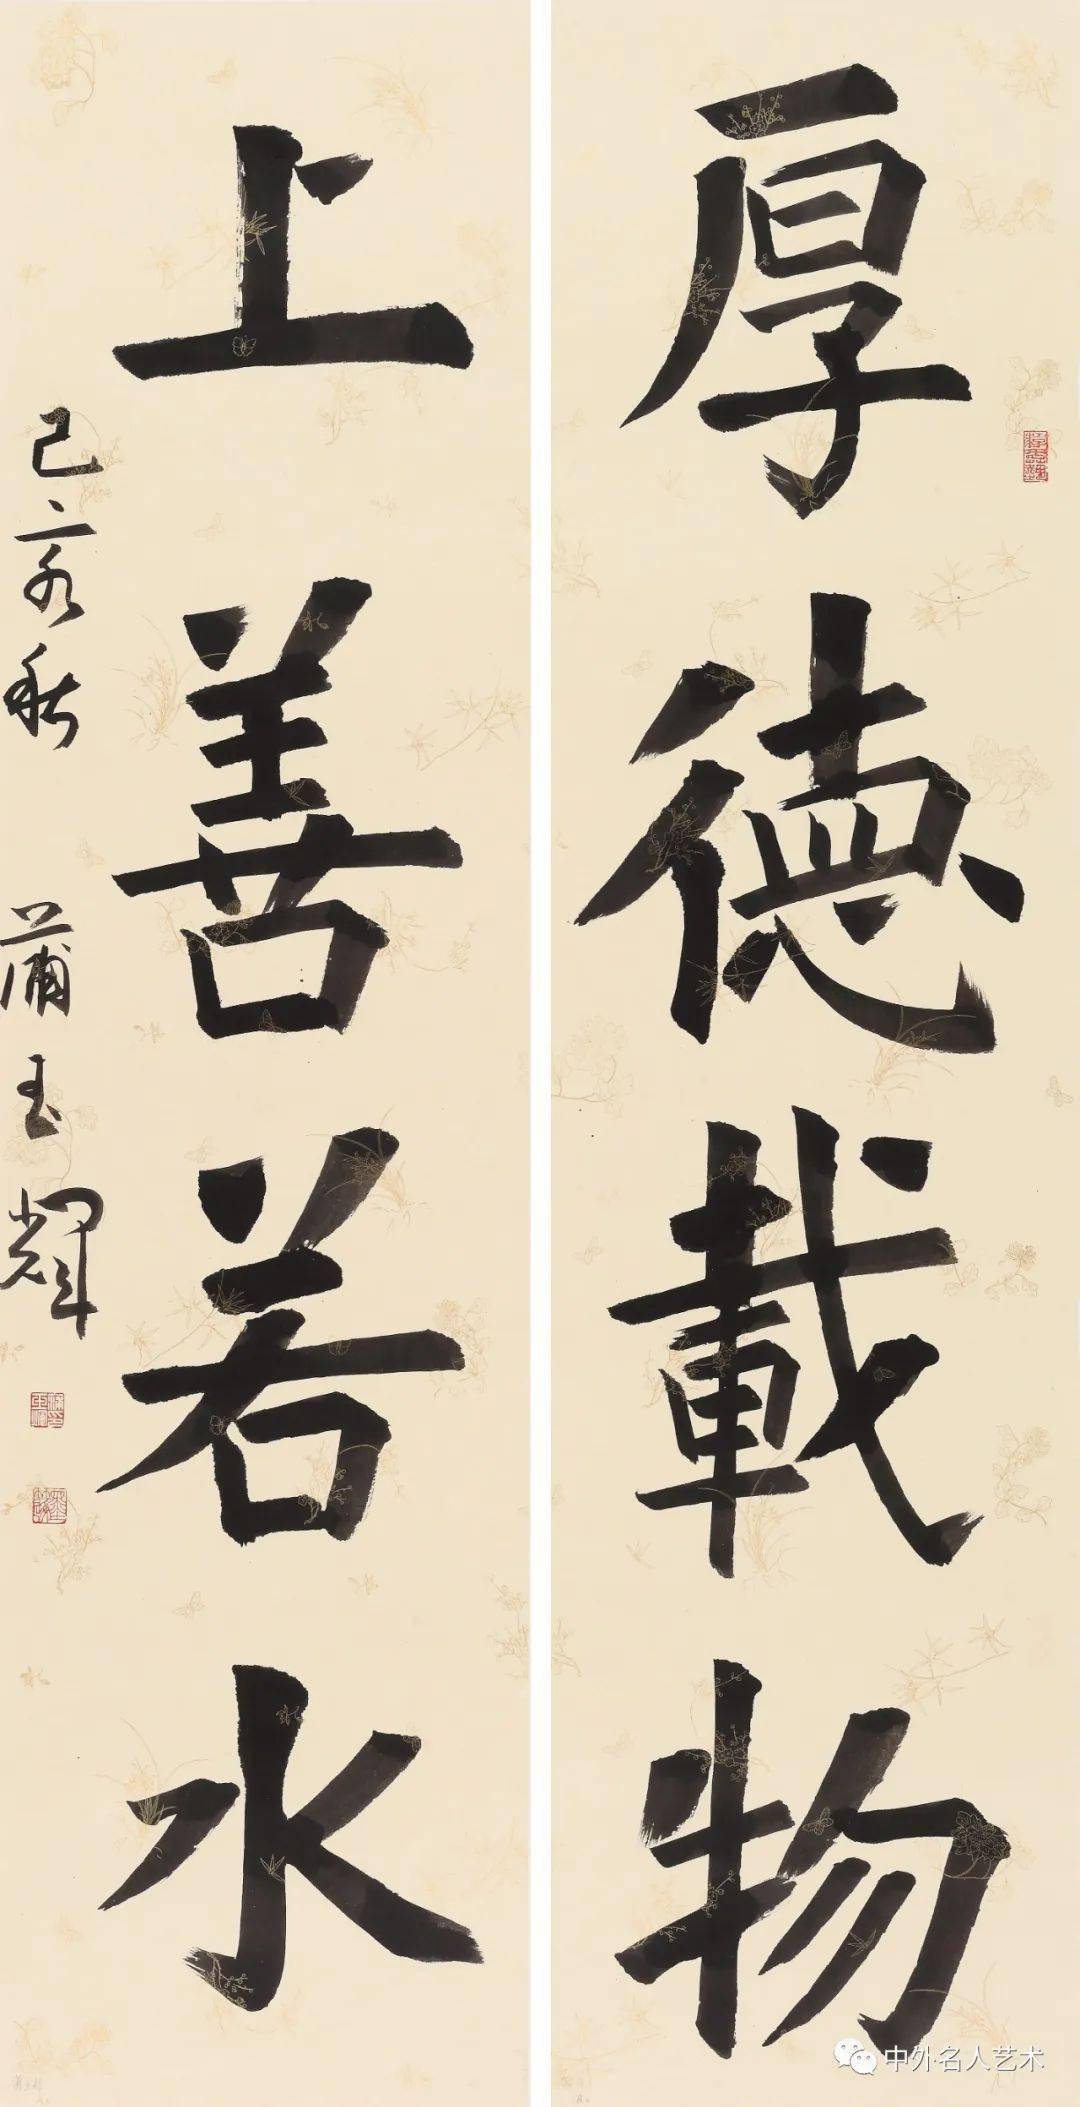 厚德載物
上善若水
己亥秋 蒲玉輝
中外名人艺术